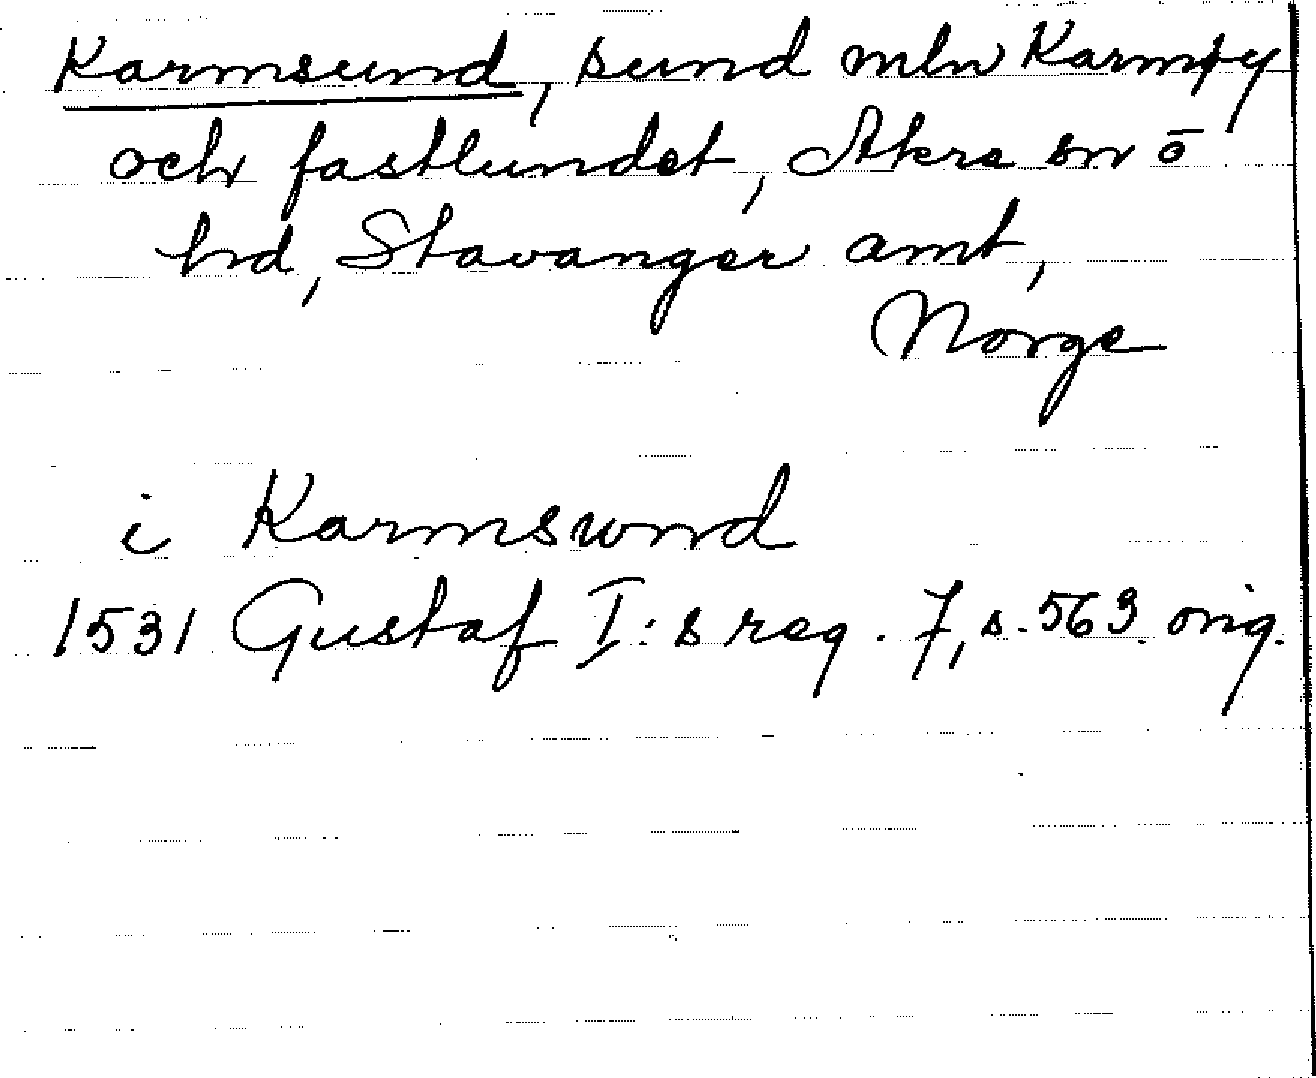 Karmsund, sund mln Karmøy
och fastlundet, Akre sn o
hd, Stavanger amt,
Norge
i Karmswnd
1531 Gustaf I:s reg. 7, s. 563. orig.